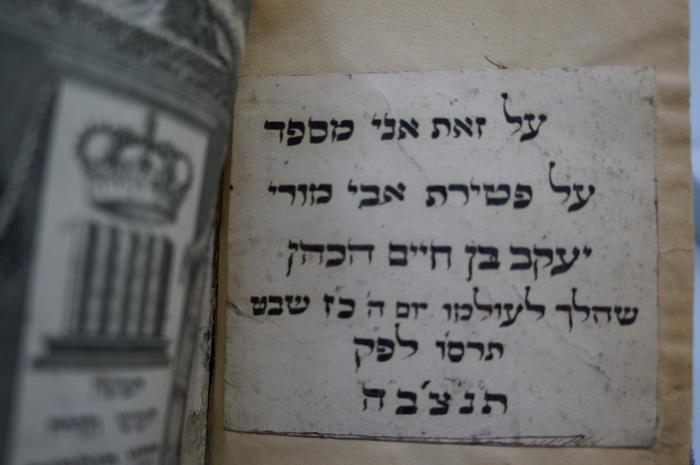 על זאת אני מספד
על פטירת אבי מורי
יעקב בן חיים הכהן
שהלך לעולמו יום ה' כז שבט
תרסו לפק
תנצ'בה